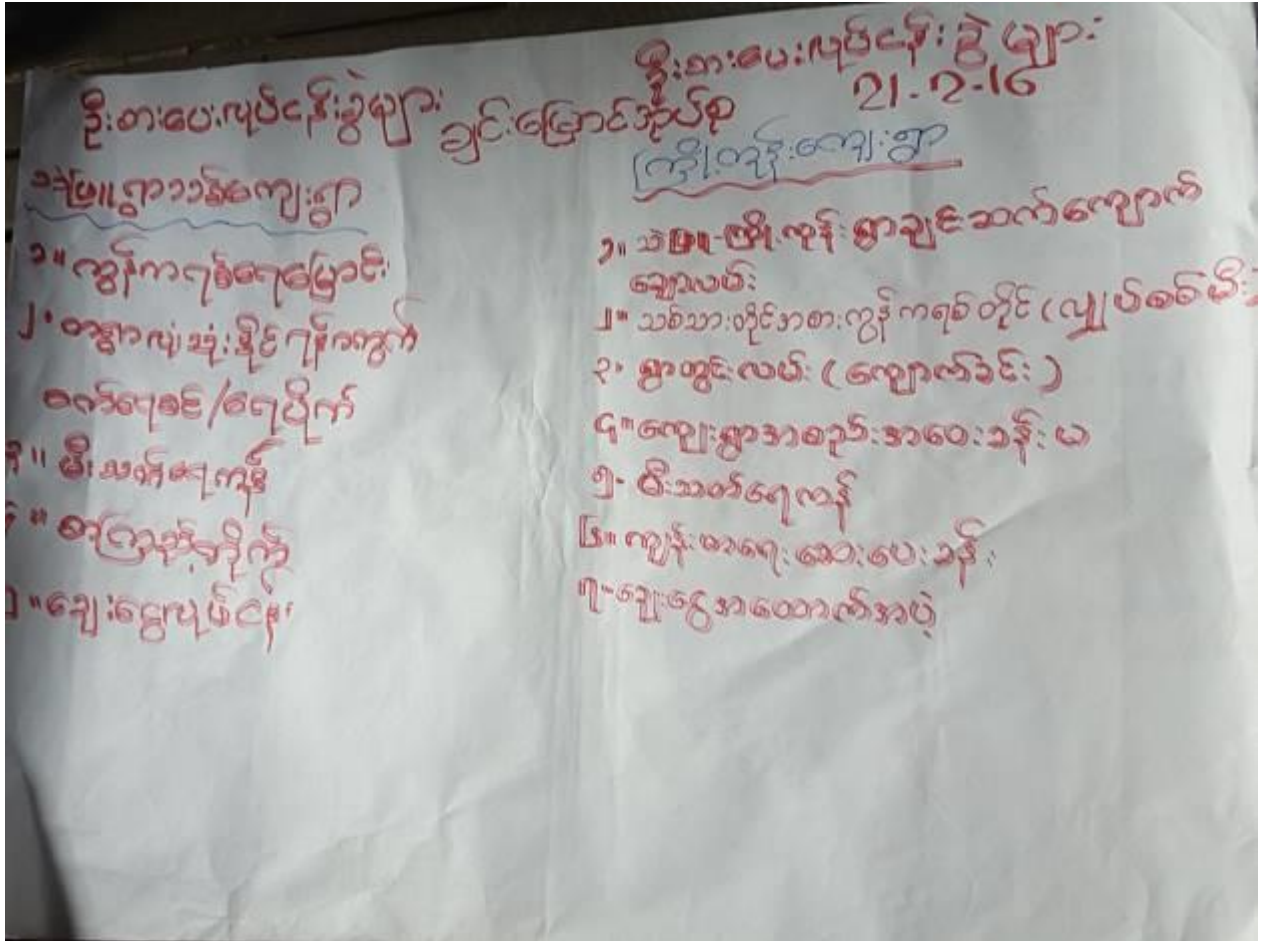 ဦးစားပေးလုပ်ငန်းခွဲများ
ချင်းမြောင်အုပ်စု
သဲဖြူရွာသစ်ကျေးရွာ
၁။ ကွန်ကရစ်ရေမြောင်း
၂။ တရွာလုံးသုံးနိုင်ရန်အတွက်
စက်ရေတင်/ရေပိုက်
၃။ မီးသတ်ရေကန်
၄။ စာကြည့်တိုက်
၅။ ချေးငွေလုပ်ငန်း
ဦးစားပေးလုပ်ငန်းခွဲများ
21-2-16
ကြို့ကုန်းကျေးရွာ
၁။ သဲဖြူ-ကြို့ကုန်းရွာချင်းဆက်ကျောက်
ချောလမ်း
၂။ သစ်သားတိုင်အစားကွန်ကရစ်တိုင် (လျှပ်စစ်မီး)
၃။ ရွာတွင်းလမ်း (ကျောက်ခင်း)
၄။ ကျေးရွာအစည်းအဝေးခန်းမ
၅။ မီးသတ်ရေကန်
၆။ ကျန်းမာရေးဆေးပေးခန်း
၇။ ချေးငွေအထောက်အပံ့